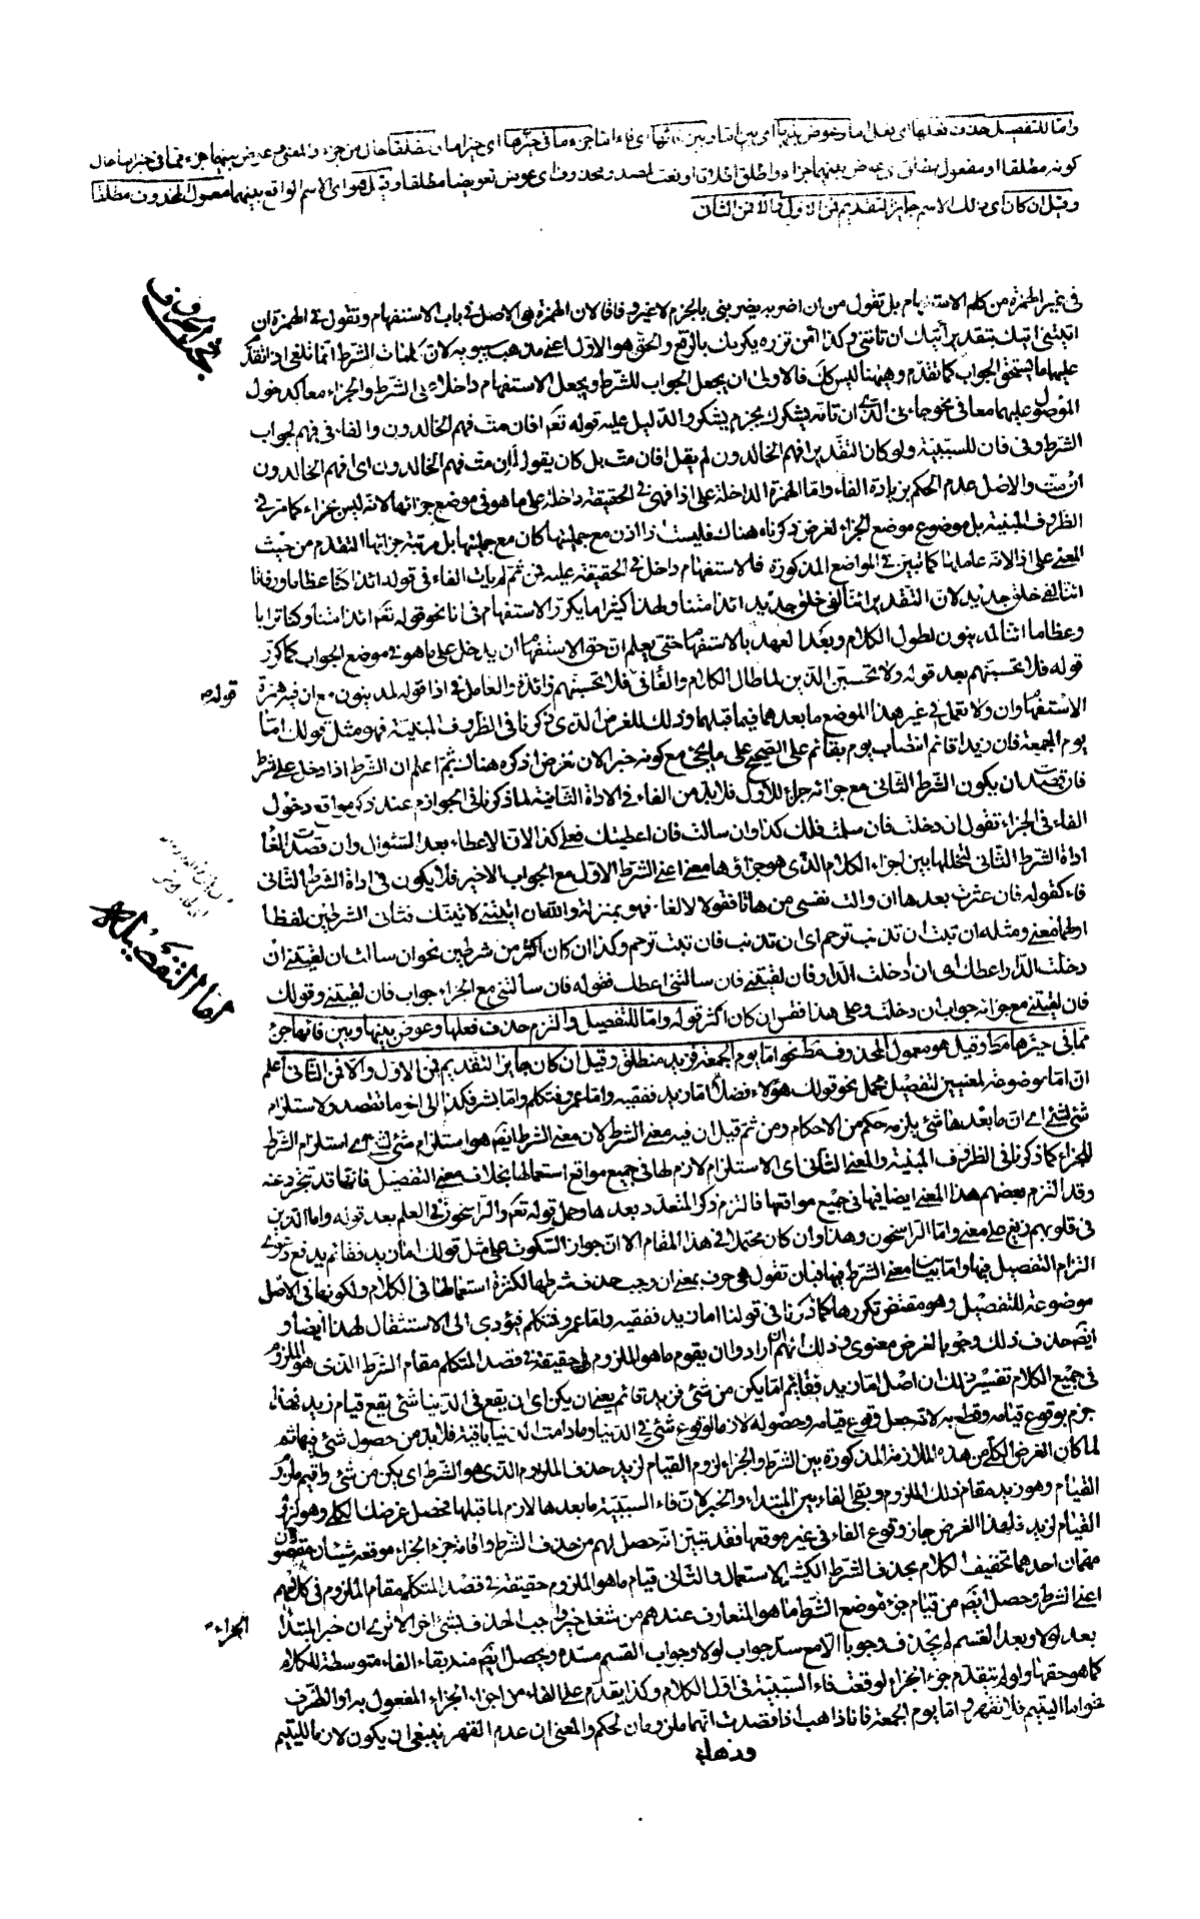 واما للتفصيل حذف فعلها اى فعل اما وعوض بينها اى بين اما وبين فائها اى فاء اما جزء مما فى حيزها اى حيز اما مطلقا حال من جزء والمعنى وعوض بينهما جزء مما فى حيزها حال
كونه مطلقا او مفعول مطلق وعوض بينهما جزاء واطلق اطلاقا او نعت لمصدر محذوف اى عوض تعويضا مطلقا وقيل هو اى الاسم الواقع بينهما معمول المحذوف مطلقا
وقيل ان كان اى ذلك الاسم جايز التقديم فمن الاول والا فمن الثانى
بحث الحروف
فى غير الهمزة من كلم الاستفهام بل تقول من ان اضربه يضربنى بالجزم لا غير وفاقا لان الهمزة هى الاصل فى باب الاستفهام وتقول فى الهمزة ان
اتيتنى اتيك بتقدير أتيك ان تاتنى وكذا أمن تزره يكرمك بالرفع والحق هو الاول اعنى مذهب سيبويه لان كلمات الشرط انما تلغى اذا تقدم
عليها ما يستحق الجواب كما تقدم وههنا ليس كك فالاولى ان يجعل الجواب للشرط ويجعل الاستفهام داخلا على الشرط والجزاء معا كدخول
الموصول عليهما معا فى نحو جاءنى الذى ان تاته يشكرك بجزم يشكر والدليل عليه قوله تعم افان مت فهم الخالدون والفاء فى فهم لجواب
الشرط وفى فان للسببية ولو كان التقدير افهم الخالدون لم يقل افان مت بل كان يقول أان مت فهم الخالدون اى افهم الخالدون
ان مت والاصل عدم الحكم بزيادة الفاء واما الهمزة الداخلة على اذا فهى فى الحقيقة داخلة على ما هو فى موضع جزائها لانه ليس بجزاء كما مر فى
الظروف المبنية بل موضوع موضع الجزاء لغرض ذكرناه هناك فليست اذا اذن مع جملتها كان مع جملتها بل مرتبة جزائها التقدم من حيث
المعنى على اذا لانه عاملها كما تبين فى المواضع المذكورة فالاستفهام داخل فى الحقيقة عليه فمن ثم لم يات الفاء فى قوله ائذا كنا عظاما ورفاتا
ائنا لفى خلق جديد لان التقدير ائنا لفى خلق جديد ائذا متنا ولهذا كثيرا ما يكرر الاستفهام فى انا نحو قوله تعم ائذا متنا وكنا ترابا
وعظاما ائنا لمدينون لطول الكلام وبعد العهد بالاستفهام حتى يعلم ان حق الاستفهام ان يدخل على ما هو فى موضع الجواب كما كرر
قوله فلا تحسبنهم بعد قوله ولا تحسبن الذين لما طال الكلام والفاء فى فلا تحسبنهم زائدة والعامل فى اذا قوله لمدينون مع ان فيه همزة
قوله
الاستفهام وان ولا تعمل فى غير هذا الموضع ما بعدهما فيما قبلهما وذلك للغرض الذى ذكرنا فى الظروف المبنية فهو مثل قولك اما
يوم الجمعة فان زيدا قائم انتصاب يوم بقائم على الصحيح على ما يجئ مع كونه خبرا لان لغرض نذكره هناك ثم اعلم ان الشرط اذا دخل على شرط
فان قصدت ان يكون الشرط الثانى مع جزائه جزاء للاول فلا بد من الفاء فى الاداة الثانية لما ذكرنا فى الجوازم عند ذكر مواقع دخول
الفاء فى الجزاء تقول ان دخلت فان سلمت فلك كذا وان سالت فان اعطيتك فعلى كذا لان الاعطاء بعد السئوال وان قصدت الغاء
اداة الشرط الثانى لتخللها بين اجزاء الكلام الذى هو جزاؤها معنى اعنى الشرط الاول مع الجواب الاخير فلا يكون فى اداة الشرط الثانى
فاء كقوله فان عثرت بعدها ان والت نفسى من هاتا فقولا لا لعا فهو بمنزلة والله ان اتيتنى لا تيتك فثانى الشرطين لفظا
اما التفصيل
اولهما معنى ومثله ان تبت ان تذنب ترحم اى ان تذنب فان تبت ترحم وكذا ان كان اكثر من شرطين نحو ان سالت ان لقيتنى ان
دخلت الدار اعطك اى ان دخلت الدار فان لقيتنى فان سالتنى اعطك فقوله فان سالتنى مع الجزاء جواب فان لقيتنى وقولك
فان لقيتنى مع جزائه جواب ان دخلت وعلى هذا فقس ان كان اكثر قوله واما للتفصيل والتزم حذف فعلها وعوض بينها وبين فائها جزء
مما فى حيزها مط وقيل هو معمول المحذوف مط نحو اما يوم الجمعة فزيد منطلق وقيل ان كان جايز التقديم فمن الاول والا فمن الثانى اعلم
ان اما موضوعة لمعنيين لتفصيل مجمل نحو قولك هؤلاء فضلاء اما زيد ففقيه واما عمرو فمتكلم واما بشر فكذا الى اخر ما تقصد ولاستلزام
شئ لشئ اى ان ما بعدها شئ يلزمه حكم من الاحكام ومن ثم قيل ان فيه معنى الشرط لان معنى الشرط ايضا هو استلزام شئ لشئ اى استلزام الشرط
للجزاء كما ذكرنا فى الظروف المبنية والمعنى الثانى اى الاستلزام لازم لها فى جميع مواقع استعمالها بخلاف معنى التفصيل فانها قد تتجرد عنه
وقد التزم بعضهم هذا المعنى ايضا فيها فى جميع مواقعها فالتزم ذكر المتعدد بعدها وحمل قوله تعم والراسخون فى العلم بعد قوله واما الذين
فى قلوبهم زيغ على معنى واما الراسخون وهذا وان كان محتملا فى هذا المقام الا ان جواز السكوت على مثل قولك اما زيد فقائم يدفع دعوى
التزام التفصيل فيها واما بيان معنى الشرط فيها فبان تقول هى حرف بمعنى ان وجب حذف شرطها لكثرة استعمالها فى الكلام ولكونها فى الاصل
موضوعة للتفصيل وهو مقتض تكررها كما ذكرنا فى قولنا اما زيد ففقيه واما عمرو فمتكلم فيؤدى الى الاستثقال لهذا ايضا و
ايضا حذف ذلك وجوبا لغرض معنوى وذلك انهم ارادوا ان يقوم ما هو الملزوم حقيقة فى قصد المتكلم مقام الشرط الذى هو الملزوم
فى جميع الكلام تفسير ذلك ان اصل اما زيد فقائم اما يكن من شئ فزيد قائم يعنى ان يكن اى ان يقع فى الدنيا شئ يقع قيام زيد فهذا
جزم بوقوع قيامه وقطع به لانه جعل وقوع قيامه وحصوله لازما لوقوع شئ فى الدنيا وما دامت الدنيا باقية فلا بد من حصول شئ فيها ثم
لما كان الغرض الكلى من هذه الملازمة المذكورة بين الشرط والجزاء لزوم القيام لزيد حذف الملزوم الذى هو الشرط اى يكن من شئ واقيم ملزوم
القيام وهو زيد مقام ذلك الملزوم وبقى الفاء بين المبتداء والخبر لان فاء السببية ما بعدها لازم لما قبلها فحصل غرضك الكلى وهو لزوم
القيام لزيد فلهذا الغرض جاز وقوع الفاء فى غير موقعها فقد تبين انه حصل لهم من حذف الشرط واقامة جزء الجزاء موقعه شيئان مقصودان
مهمان احدهما تخفيف الكلام بحذف الشرط الكثير الاستعمال والثانى قيام ما هو الملزوم حقيقة فى قصد المتكلم مقام الملزوم فى كلامهم
اعنى الشرط وحصل ايضا من قيام جزء موضع الشرط ما هو المتعارف عندهم من شغل حيز واجب الحذف بشئ اخر الا ترى ان خبر المبتدا
الجزاء
بعد لولا وبعد القسم لم يحذف وجوبا الا مع سد جواب لولا وجواب القسم مسده ويحصل ايضا منه بقاء الفاء متوسطة للكلام
كما هو حقها ولو لم يتقدم جزء الجزاء لوقعت فاء السببية فى اول الكلام وكذا يقدم على الفاء من اجزاء الجزاء المفعول به او الظرف
نحو اما اليتيم فلا تقهر واما يوم الجمعة فانا ذاهب اذا قصدت انهما ملزومان لحكم والمعنى ان عدم القهر ينبغى ان يكون لازما لليتيم
وذهابى